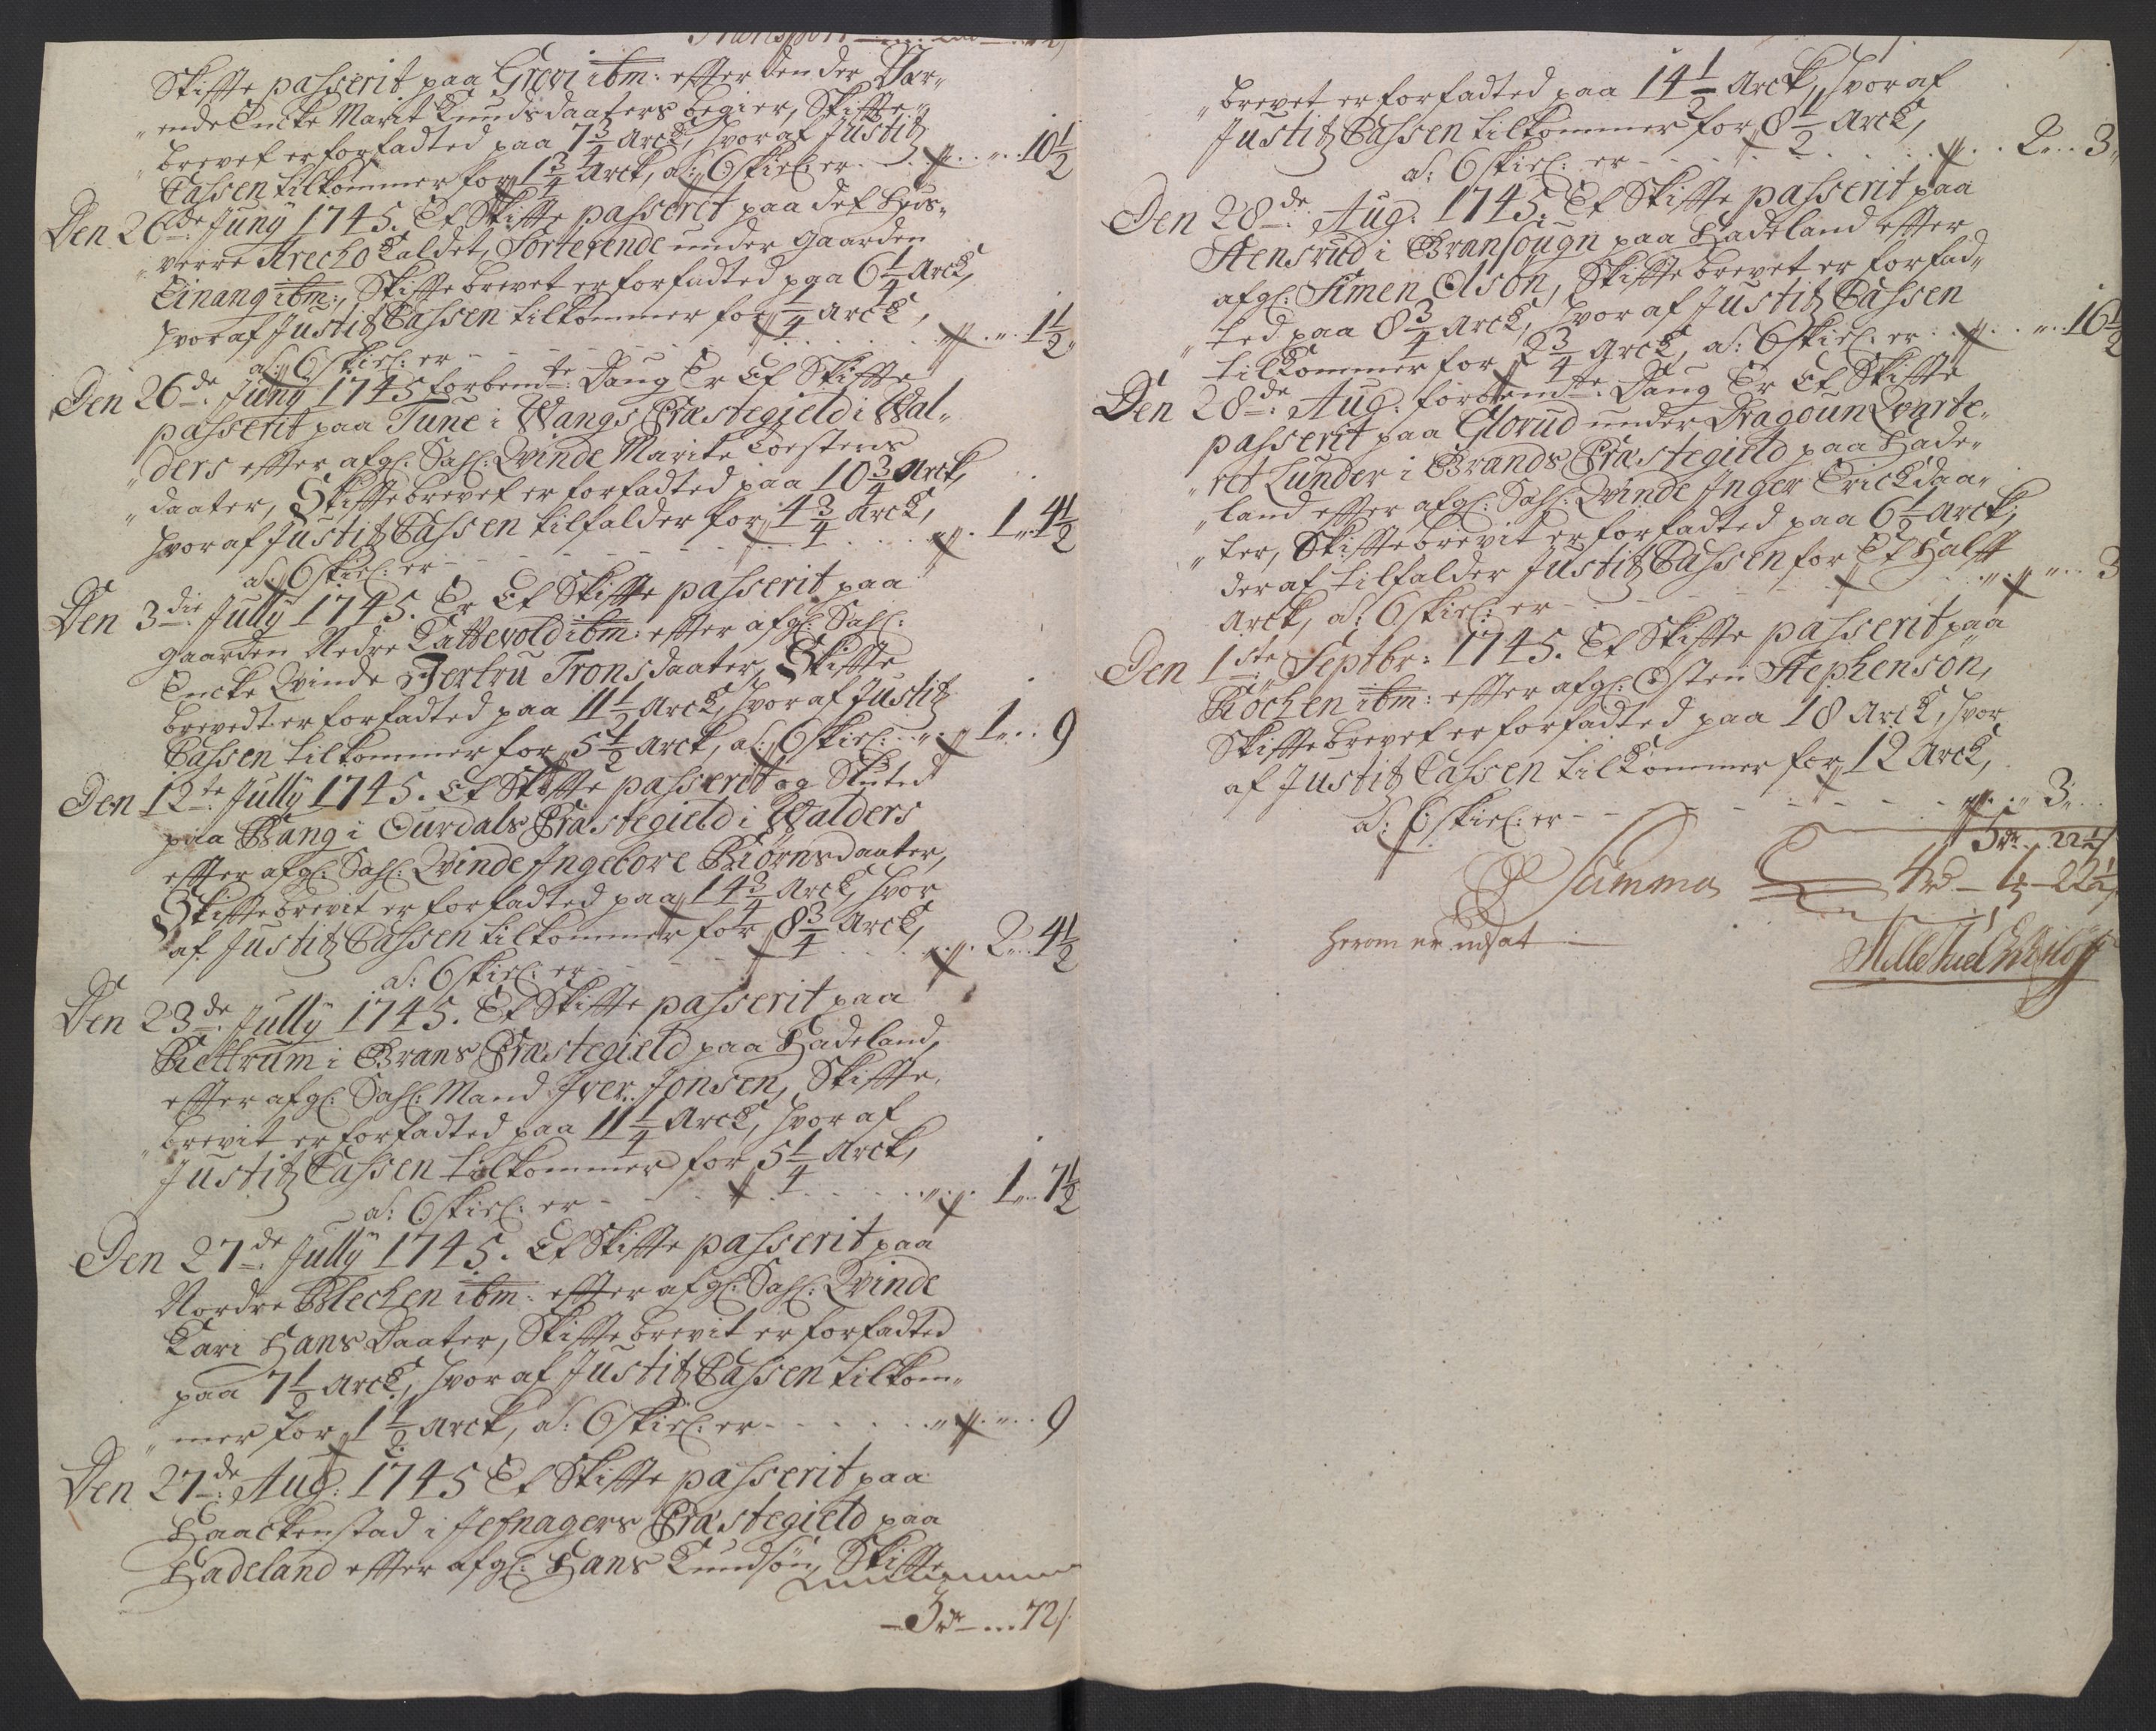 Transport
Skifte passerit paa Grovi ibm: effter den der Vær-
„ende Encke Marit Knudsdaaters begier, Skifte„
„brevet er forfadted paa 7 3/4 Arck, hvoraf Justitz
Cassen tilkommer for 1 3/4 Arck, a: 6 skiel: er - - - „ . „ . 10 1/2
Den 26de Juny 1745. Et Skifte passeret paa det Huus„
„verre Krecho kaldet, Sorterende under gaarden
Einang ibm:, Skiftebrevet er forfadted paa 6 1/4 Arck,
hvoraf Justitz Cassen tilkommer for 1/4 Arck,
a: 6 skiel: er - - - „ . „ . 1 1/2
Den 26de Juny 1745 forbemte Daug Er Et Skifte
passerit paa Tune i Wangs Præstegield i Wal„
„ders effter afgl: Sahl: Qvinde Marite Toestens
„daater, Skiftebrevet er forfadted paa 10 3/4 Arck,
hvoraf Justitz Cassen tilfalder for 4 3/4 Arck,
a: 6 skiel: er - - - „ . 1 „ 4 1/2
Den 3die Jully 1745. Er Et Skifte passerit paa
gaarden Nedre Kattevold ibm: effter afgl: Sahl:
Encke Qvinde Jertru Tronsdaater, Skifte
brevedt er forfadted paa 11 1/2 Arck, hvoraf Justitz
Cassen tilkommer for 5 1/2 Arck, a: 6 skiel: - - „ 1 „ . 9
Den 12te Jully 1745. Et Skifte passerit og Sluted
paa Bang i Ourdals Præstegield i Walders
effter afgl: Sahl: Qvinde Ingebore Biørnsdaater,
Skiftebrevit er forfadted paa 14 3/4 Arck, hvor
af Justitz Cassen tilkommer for 8 3/4 Arck,
a: 6 skiel: er - - - „ . 2 „ 4 1/2
Den 23de Jully 1745. Et Skifte passerit paa
Kiettrum i Brans Præstegield paa Hadeland,
effter afgl: Sahl: Mand Iver Jonsen, Skifte„
„brevit er forfadted paa 11 1/4 Arck, hvoraf
Justitz Cassen tilkommer for 5 1/4 Arck,
a: 6 skiel: er - - - „ . 1 „ 7 1/2
Den 27de Jully 1745. Et Skifte passerit paa
Nordre Blechen ibm: effter afgl: Sahl: Qvinde
Kari Hans Daater, Skiftebrevit er forfadted
paa 7 1/2 Arck, hvoraf Justitz Cassen tilkom„
„mer for 1 1/2 Arck, a: 6 skiel: er - - - „ . „ . 9
Den 27de Aug: 1745 Et Skifte passerit paa
Haackenstad i Jefnagers Præstegield paa
Hadeland effter afgl: Hans Knudsøn, Skifte
3 rdr - . . . 12 s
„brevet er forfadted paa 14 1/2 Arck, hvoraf
Justitz Cassen tilkommer for 8 1/2 Arck,
a: 6 skiel: er - - - „ . . 2 „ . 3 „
Den 28de Aug: 1745. Et Skifte passerit paa
Stensrud i Bransougn paa Hadeland effter
afgl: Simen Olsøn, Skiftebrevet er forfad„
„ted paa 8 3/4 Arck, hvoraf Justitz Cassen
tilkommer for 2 3/4 Arck, a: 6 skiel: er - - „ . „ . 16 1/2
Den 28de Aug: forbemte Daug Er Et Skifte
passerit paa Glorud under Dragoun Qvarte„
„ret Lunder i Brands Præstegield paa Hade„
„land effter afgl: Sahl: Qvinde Inger Erickdaa„
„ter, Skiftebrevit er forfadted paa 6 1/2 Arck,
deraf tilfalder Justitz Cassen for Et Halft
Arck, a: 6 skiel: er - - - „ . „ . 3
Den 1ste Septbr: 1745. Et Skifte passerit paa
Kochen ibm: effter afgl: Osten Stephensøn,
Skiftebrevet er forfadted paa 18 Arck, hvor
af Justitz Cassen tilkommer for 12 Arck,
a: 6 skiel: er - - - „ . 3 „ . .
5 rdr . . 22 1/2 s
Summa 4 rd - 1 - 22 1/2
herom er udsat